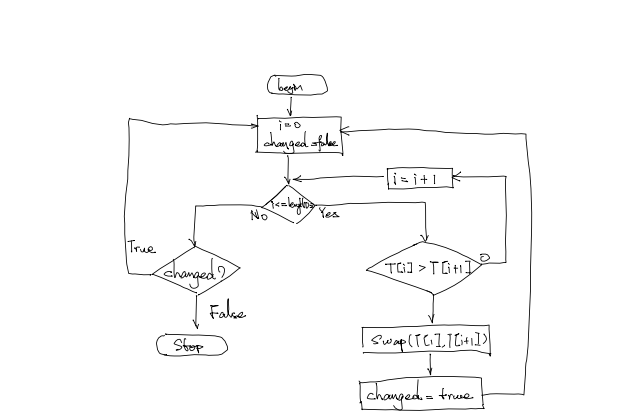 begin
i=0
changed=false
i=i+1
No
Yes
True
changed?
T[i]>T[i+1]
0
False
Stop
Swap(T[i],T[i+1])
changed=true